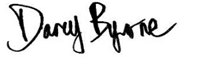 Darcy Byrne